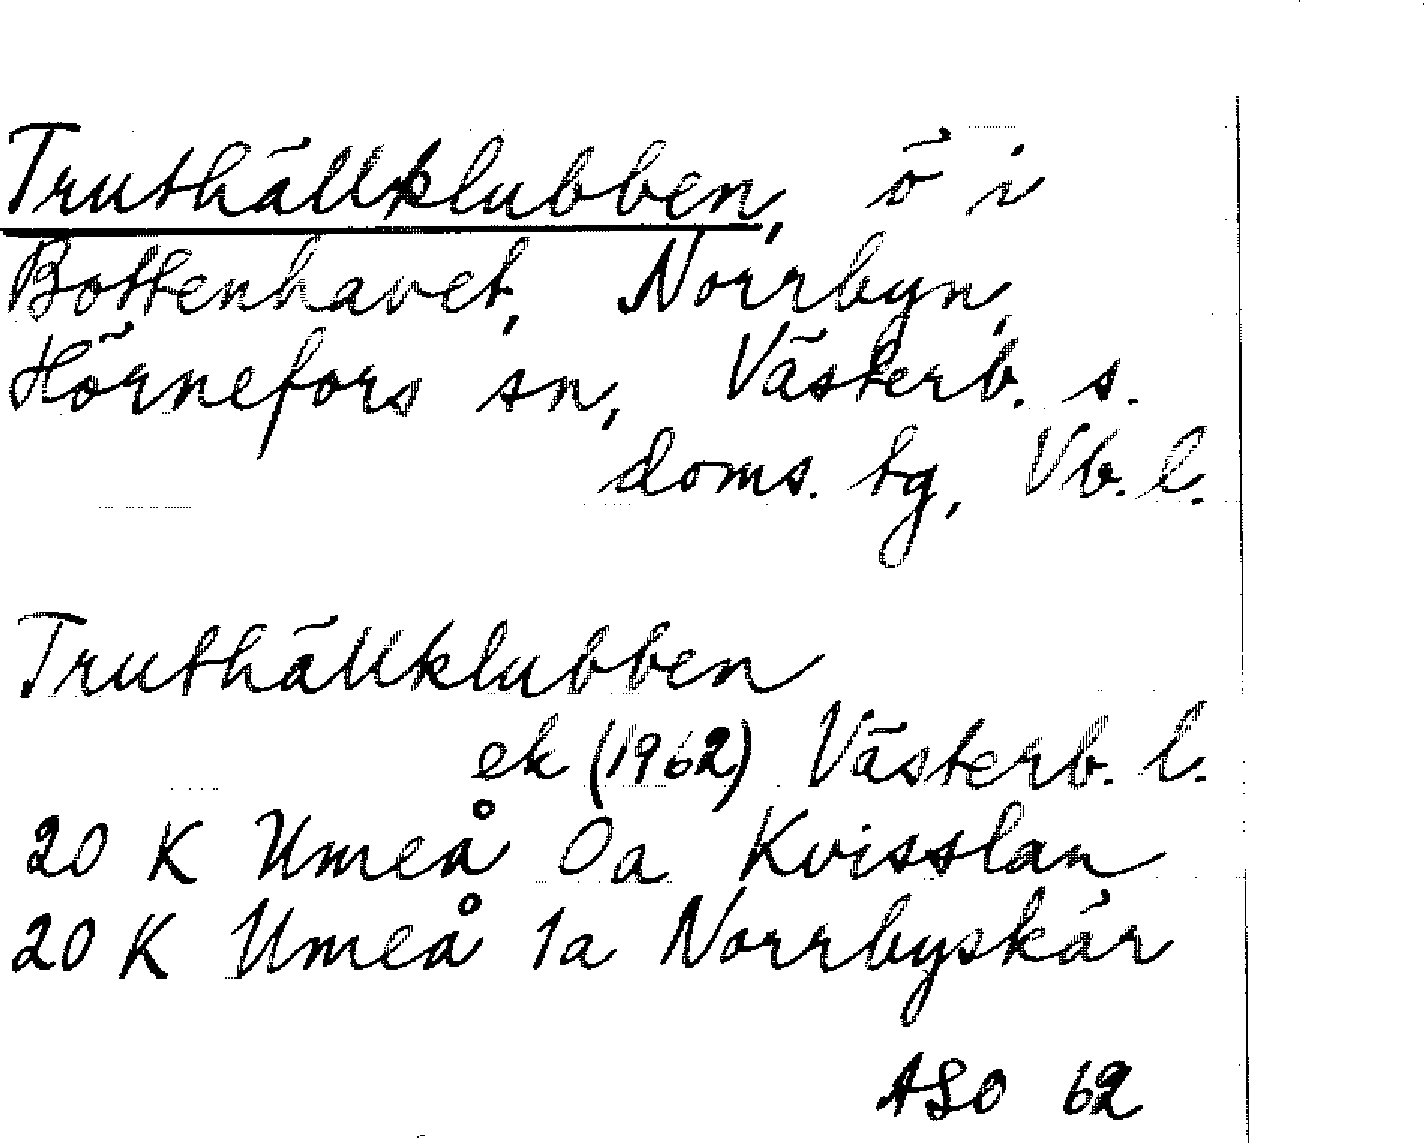 Truthällklubben, ö i
Bottenhavet, Norrbyn,
Hörnefors sn, Västerb. s.
doms. tg, Vb. l.
Truthällklubben
ek (1962) Västerb. l.
20 K Umeå 0a Kvisslan
20 K Umeå 1a Norrbyskär
ASO 62